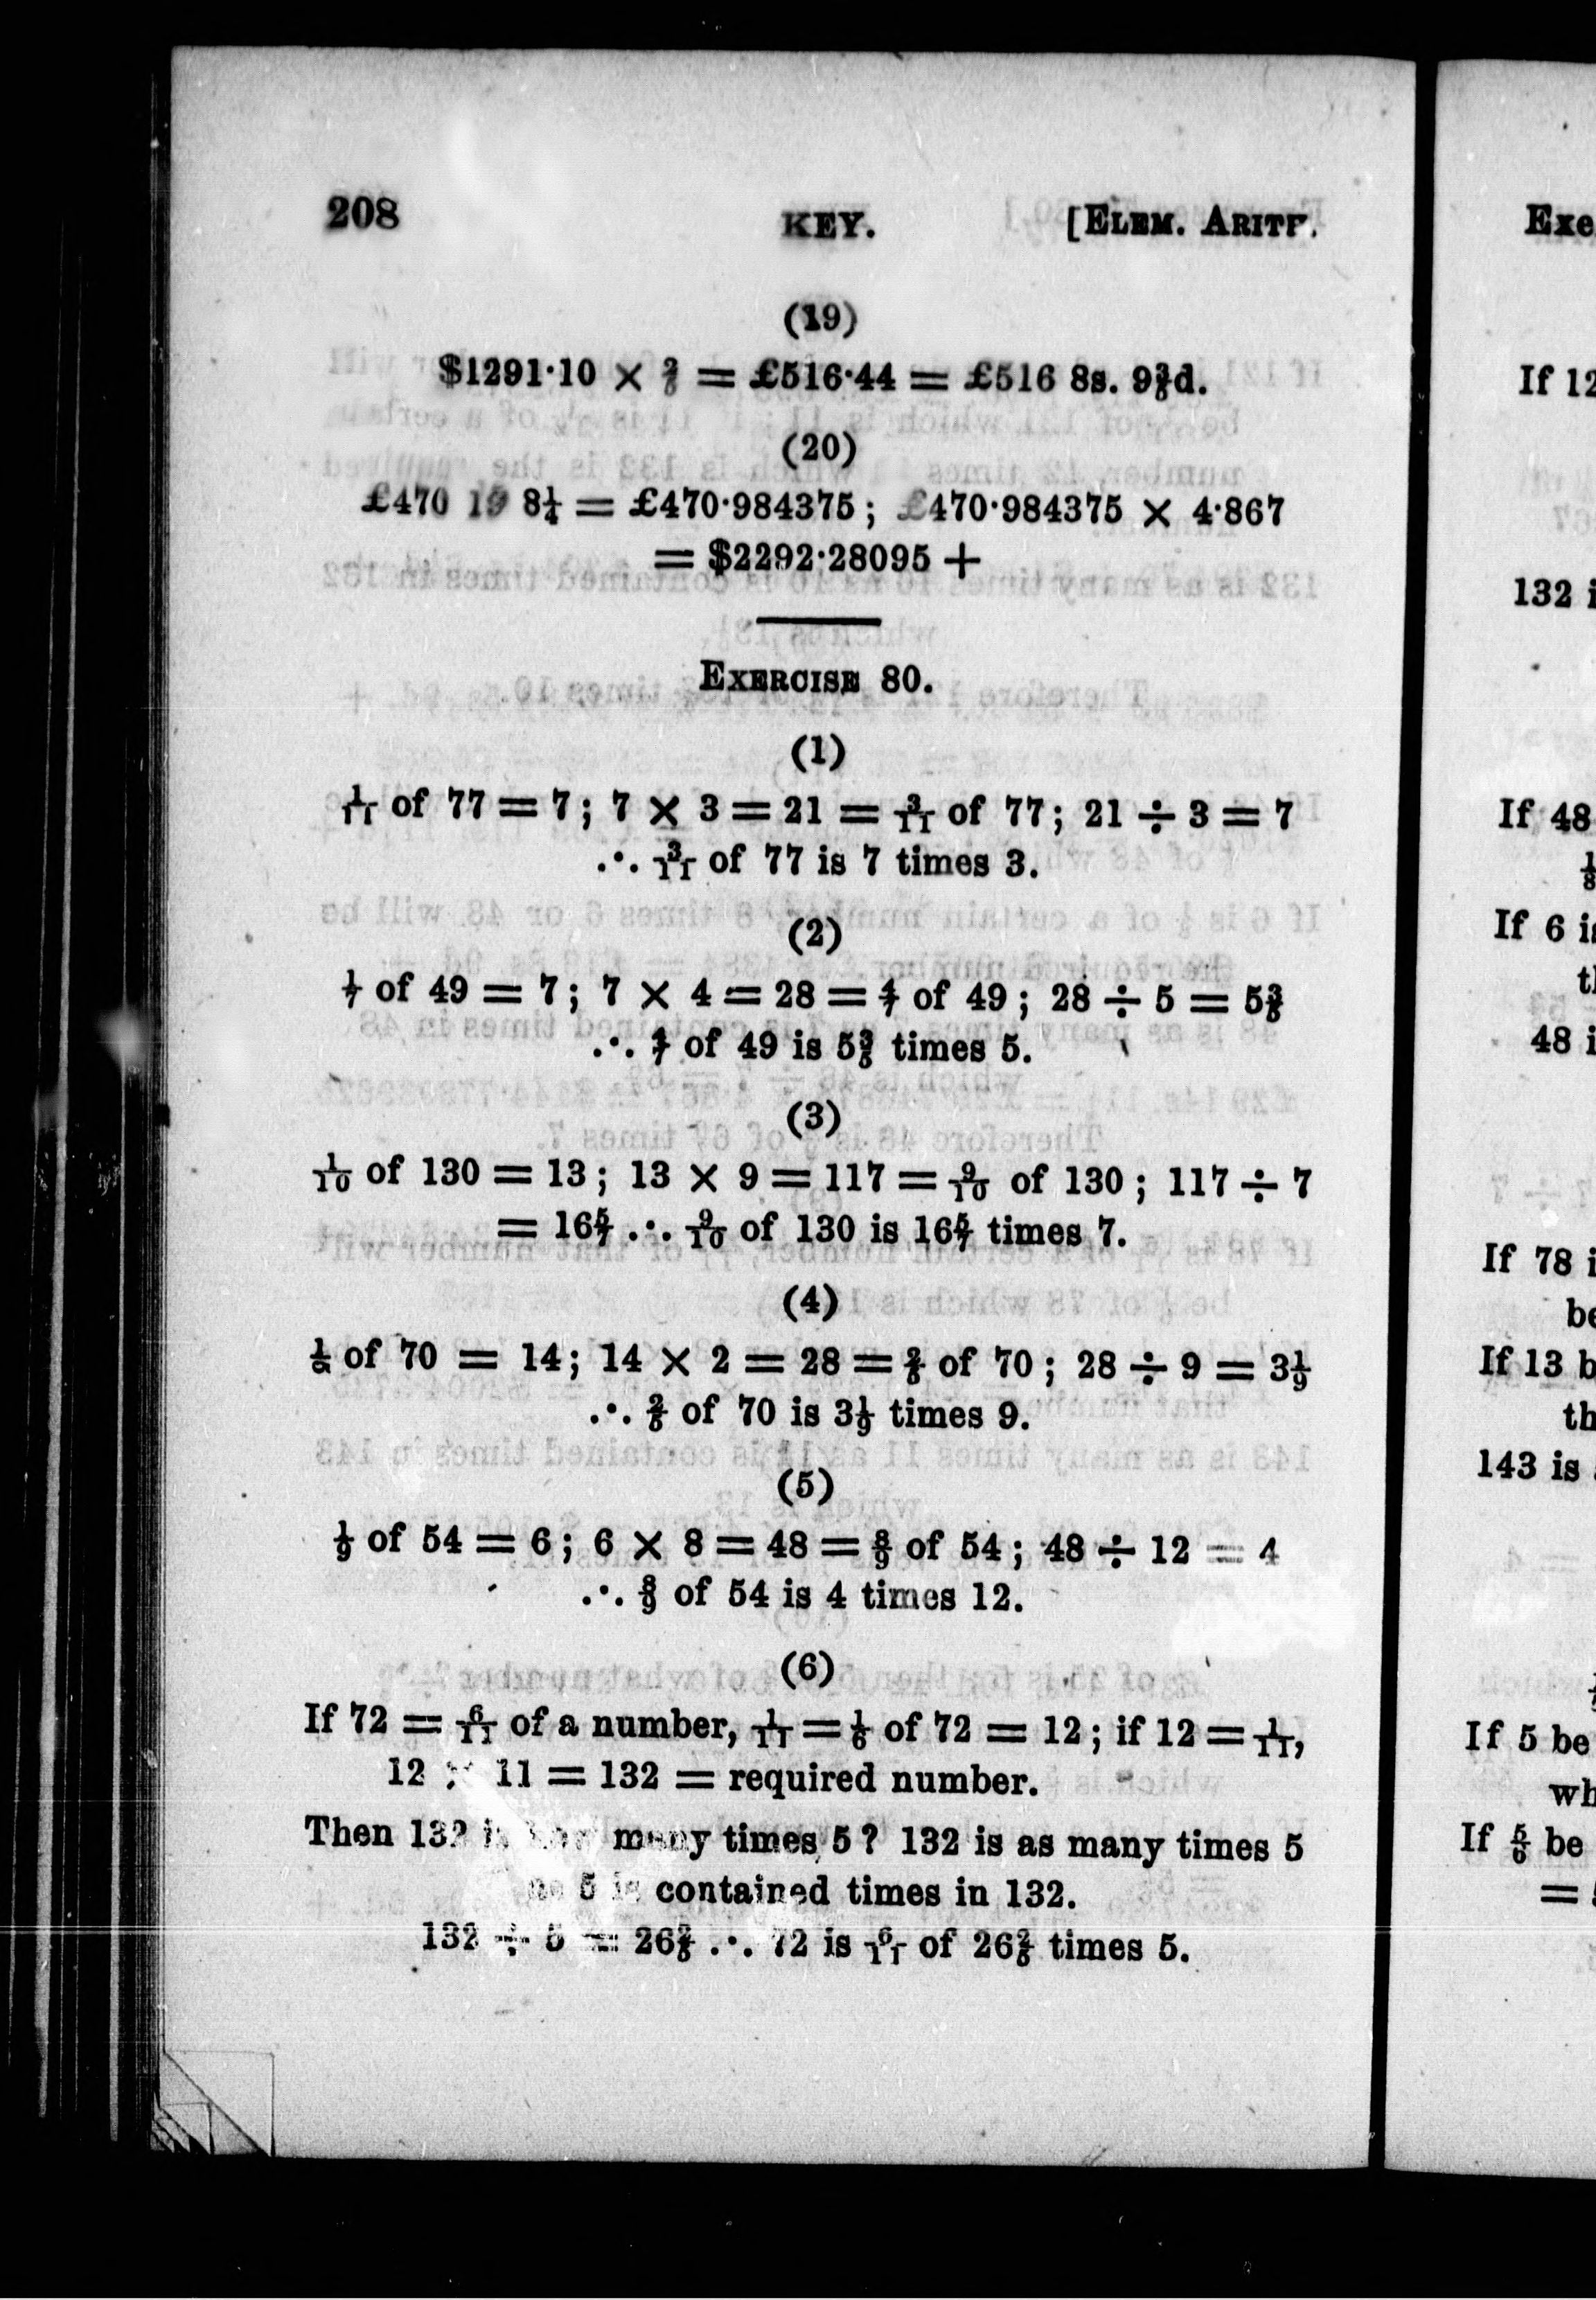 208 KEY. [ELEM. ARITH.
(19)
$1291·10 × 2/5 = £516·44 = £516 8s. 9 3/5d.
(20)
£470 19 8¼ = £470·984375; £470·984375 × 4·867
= $2292·28095 +
EXERCISE 80.
(1)
1/11 of 77 = 7; 7 × 3 = 21 = 3/11 of 77; 21 ÷ 3 = 7
∴ 3/11 of 77 is 7 times 3.
(2)
1/7 of 49 = 7; 7 × 4 = 28 = 4/7 of 49; 28 ÷ 5 = 5 3/5
∴ 4/7 of 49 is 5 3/5 times 5.
(3)
1/10 of 130 = 13; 13 × 9 = 117 = 9/10 of 130; 117 ÷ 7
= 16 5/7 ∴ 9/10 of 130 is 16 5/7 times 7.
(4)
1/5 of 70 = 14; 14 × 2 = 28 = 2/5 of 70; 28 ÷ 9 = 3 1/9
∴ 2/5 of 70 is 3 1/9 times 9.
(5)
1/9 of 54 = 6; 6 × 8 = 48 = 8/9 of 54; 48 ÷ 12 = 4
∴ 8/9 of 54 is 4 times 12.
(6)
If 72 = 6/11 of a number, 1/11 = 1/6 of 72 = 12; if 12 = 1/11,
12 × 11 = 132 = required number.
Then 132 is how many times 5? 132 is as many times 5
as 5 is contained times in 132.
132 ÷ 5 = 26 2/5 ∴ 72 is 6/11 of 26 2/5 times 5.
If 12
132 i
If 48
1/8
If 6 is
th
48 i
If 78 i
be
If 13 b
th
143 is
If 5 be
wh
If 5/6 be
=